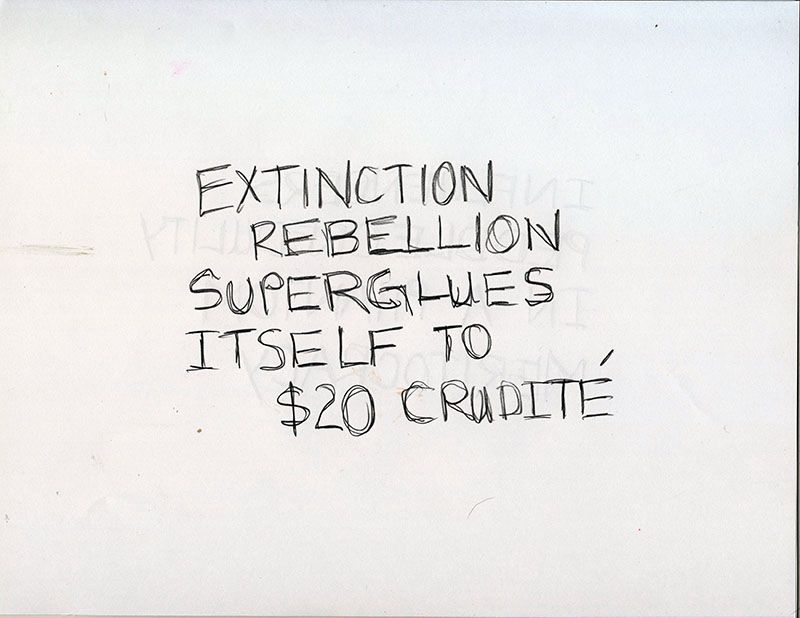 EXTINCTION
REBELLION
SUPERGLUES
ITSELF TO
$20 CRUDITÉ